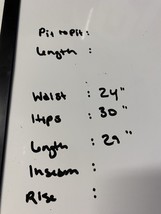 Pit to Pit :
Length :
Waist : 24"
Hips : 30"
Length : 29"
Inseam :
Rise :